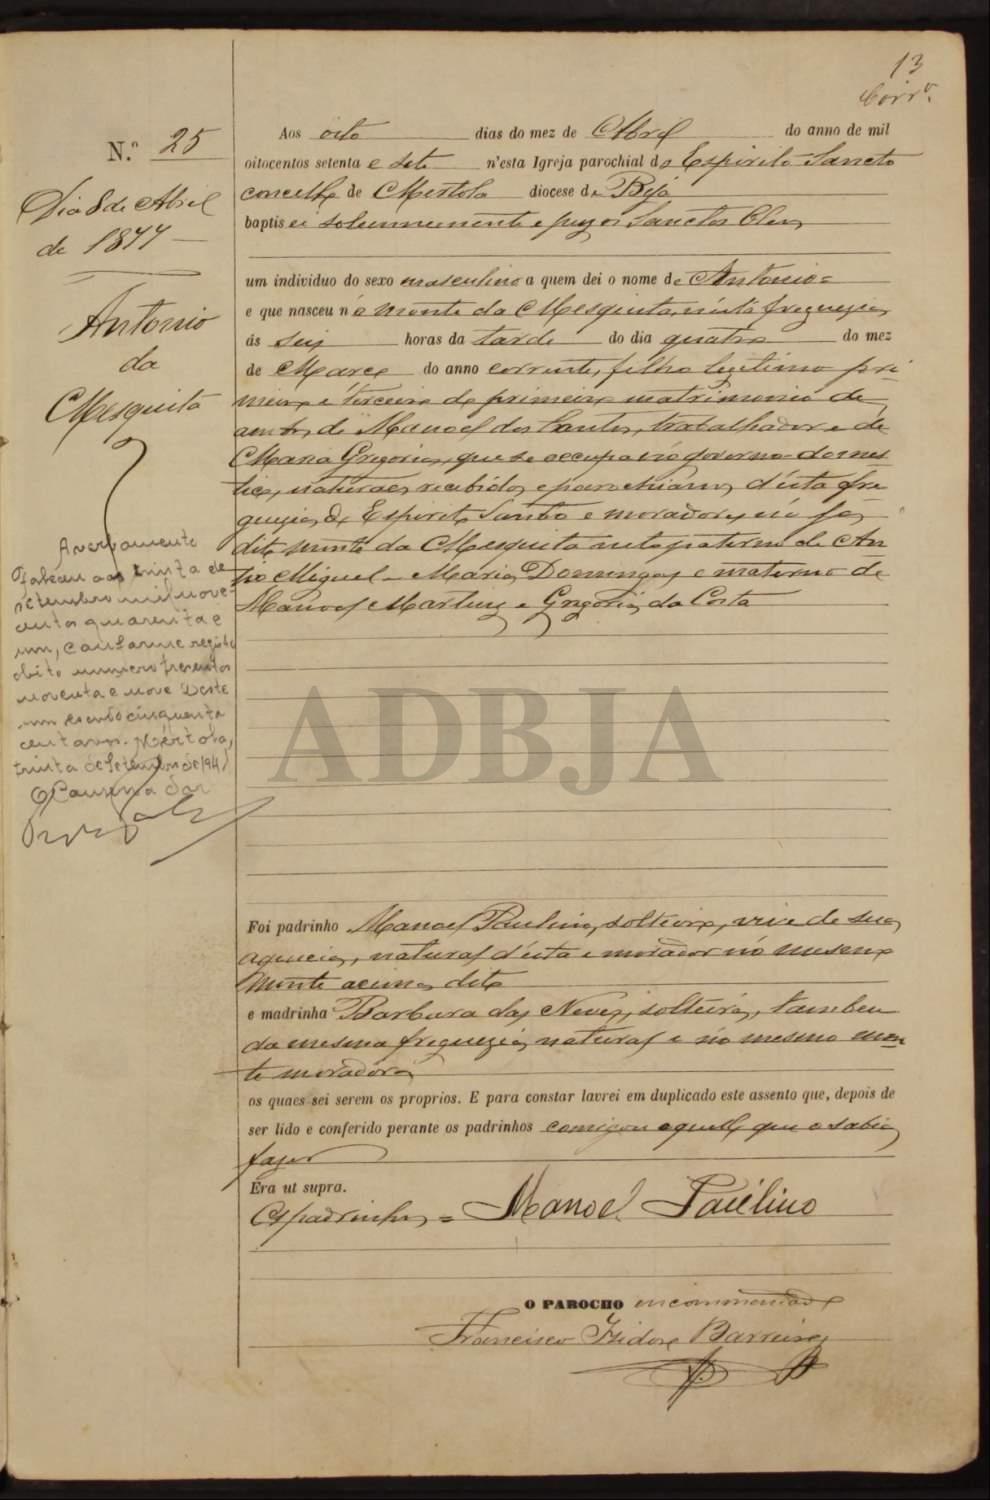 13
Corr.º
N.º 25
Dia 8 de Abril
de 1877
Antonio
da
Mesquita
Averbamento
Faleceu aos trinta de
setembro mil nove-
centos quarenta e
um, conforme registo
obito numero trezentos
noventa e nove Deste
um escudo cinquenta
centavos. Mértola,
trinta de Setembro de 1941
O
Aos oito dias do mez de Abril do anno de mil
oitocentos setenta e sete n'esta Igreja parochial do Espirito Sancto
concelho de Mertola diocese de Beja
baptisei solemnemente e puz os Sanctos Oleos
um individuo do sexo masculino a quem dei o nome de Antonio=
e que nasceu nó monte da Mesquita, n'ésta freguezia,
ás seis horas da tarde do dia quatro do mez
de Março do anno corrente, filho legitimo pri-
meiro e terceiro do primeiro matrimonio de
ambos, de Manoel dos Santos, trabalhador e de
Maria Grigoria, que se occupa nó governo domes-
tico, naturaes, recebidos e parochianos d'ésta fre
guezia do Espirito Santo e moradores nó já
dito monte da Mesquita neto paterno de An-
tonio Miguel e Maria Domingas e materno de
Manoel Martins e Grigoria da Costa
ADBJA
Foi padrinho Manoel Paulino, solteiro, vive de sua
agencia, natural d'ésta e morador nó mesmo
monte acima dito
e madrinha Barbara das Neves, solteira, tambem
da mesma freguezia, natural e no mesmo mon
te moradora
os quaes sei serem os proprios. E para constar lavrei em duplicado este assento que, depois de
ser lido e conferido perante os padrinhos comigo aquelle que o sabia
fazer
Era ut supra.
O padrinho = Manoel Paulino
O PAROCHO encommendado
Francisco Izidoro Barreiros